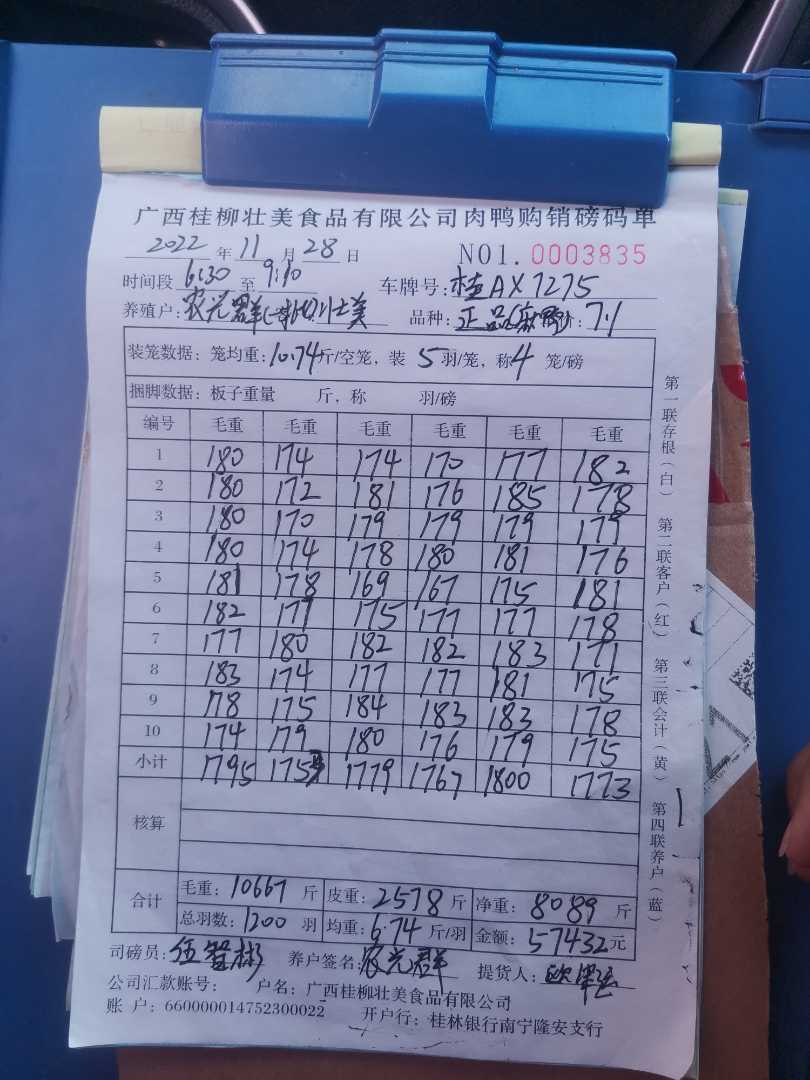 广西桂柳壮美食品有限公司肉鸭购销磅码单
2022 年 11 月 28 日 NO1.0003835
时间段 6:30 至 9:10 车牌号: 桂AX7275
养殖户: 农光群 壮美 品种: 正品 价: 7.1
装笼数据: 笼均重: 10.74 斤/空笼, 装 5 羽/笼, 称 4 笼/磅
捆脚数据: 板子重量 斤, 称 羽/磅
编号 毛重 毛重 毛重 毛重 毛重 毛重
1 180 174 174 170 177 182
2 180 172 181 176 185 178
3 180 170 179 179 179 179
4 180 174 178 180 181 176
5 181 178 169 167 175 181
6 182 177 175 177 177 178
7 177 180 182 182 183 171
8 183 174 177 177 181 175
9 178 175 184 183 183 178
10 174 179 180 176 179 175
小计 1795 1753 1779 1767 1800 1773
核算
合计 毛重: 10667 斤 皮重: 2578 斤 净重: 8089 斤
总羽数: 1200 羽 均重: 6.74 斤/羽 金额: 57432 元
司磅员: 伍 彬 养户签名: 农光群 提货人: 欧
公司汇款账号: 户名: 广西桂柳壮美食品有限公司
账 户: 660000014752300022 开户行: 桂林银行南宁隆安支行
第一联存根(白) 第二联客户(红) 第三联会计(黄) 第四联养户(蓝)